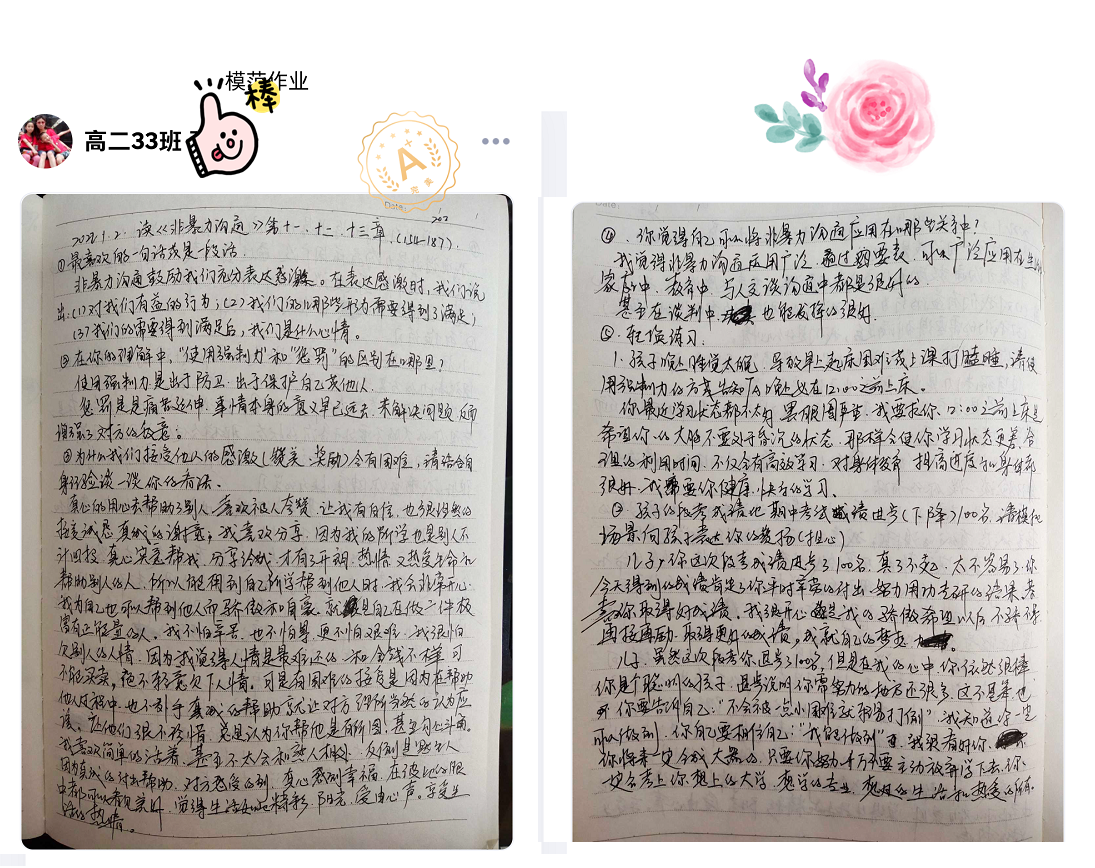 模范作业
棒
高二33班
A+
完美
Date:
2022.1.2. 读《非暴力沟通》第十一、十二、十三章.(154-187).
①最喜欢的一句话或是一段话.
非暴力沟通鼓励我们充分表达感激。在表达感激时,我们说
出:(1)对我们有益的行为;(2)我们的哪些需要得到了满足;
(3)我们的需要得到满足后,我们是什么心情。
②在你的理解中,“使用强制力”和“惩罚”的区别在哪里?
使用强制力是出于防卫.出于保护自己或他人.
惩罚是痛苦延伸.事情本身的意义早已远去.未解决问题反而
增强了对方的敌意。
③为什么我们接受他人的感激(赞美、奖励)会有困难,请结合自
身经验谈一谈你的看法.
真心的用心去帮助了别人.喜欢被人夸赞.让我有自信.也很坦然的
接受诚恳真诚的谢意.我喜欢分享.因为我的所学也是别人不
计回报.真心实意帮我.分享给我.才有了开朗.热情又热爱生命和
帮助别人的人.所以能用到自己所学帮到他人时.我会非常开心.
我为自己也可以帮到他人而骄傲和自豪.就是自己在做一件极
富有正能量的人.我不怕辛苦.也不怕累.更不怕艰难.我很怕
欠别人的人情.因为我觉得人情是最难还的.和金钱不样.可
不能买卖.绝不轻意欠下人情.可是有困难的接受是因为在帮助
他人过程中.也不乏乎真诚的帮助.就让对方理所当然的认为应
该.
我喜欢简单的活着.甚至不太会和熟人相处.反倒是陌生人
因为真诚的付出帮助.对方感受的到.真心感到幸福.在彼此的眼
觉得生活如此精彩.阳光.爱由心声.享受生
活的热情.
④.你觉得自己可以将非暴力沟通应用在哪些关系中?
我觉得非暴力沟通应用广泛.通过购要表.可以广泛应用在生活
家庭中.教育中.与人交谈沟通中都是很好的.
甚至在谈判中.也能发挥的很好.
⑤.轻松练习.
1.孩子晚上睡觉太晚.导致早上起床困难或上课打瞌睡,请使
用强制力的方案告知TA晚上必在12:00之前上床.
你最近学习状态都不太好.黑眼圈严重.我要求你.12:00之前上床是
希望你的大脑不要处于昏沉的状态.那样会使你学习状态更差.合
理的利用时间.不仅会有高效学习.对身体健康.提高进度和身体都
很好.我需要你健康.快乐的学习.
②.孩子的段考成绩比期中考试成绩进步(下降)100名.请模拟
场景向孩子表达你的赞扬(担心)
儿子:你这次段考成绩进步了100名.真了不起.太不容易了.你
今天得到的成绩肯定是你平时辛苦的付出.努力用功去研的结果.恭
喜你取得好成绩.我很开心.这是我的骄傲.希望以后不骄不躁
再接再励.取得更好的成绩.成就自己的梦想.
儿子.虽然这次段考你退步了100名.但是在我的心中.你依然很棒
你是个聪明的孩子.退步说明你需努力的地方还很多.这不是笨.也
你要告诉自己:“不会被一点小困难就轻易打倒”.我知道你一定
可以做到.你自己要相信自己:“我能做到”.我很看好你.
你将来一定会成大器的.只要你努力.千万不要主动放弃学下去.你一
定会考上你想上的大学.想学的专业.想过的生活和热爱的所有.